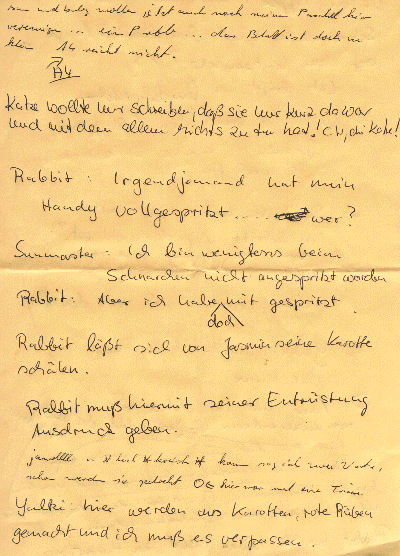 nun und wollen jetzt auch noch meinen hier
verewigen ... ein Problem ... das Blatt ist doch zu
klein A4 reicht nicht.
A4
Katze wollte nur schreiben, daß sie nur kurz da war
und mit dem allem nichts zu tun hat! C.U., die Katze!
Rabbit: Irgendjemand hat mein
Handy vollgespritzt .... wer?
Sunmaster: Ich bin wenigstens beim
Schnarchen nicht angespritzt worden
Rabbit: Aber ich habe mit gespritzt.
doch
Rabbit läßt sich von Jasmin seine Karotte
schälen.
Rabbit muß hiermit seiner Entrüstung
Ausdruck geben.
kaum sag ich zwei Worte,
schon werden sie hier war mal eine
Yalki: hier werden aus Karotten, rote Rüben
gemacht und ich muß es verpassen.